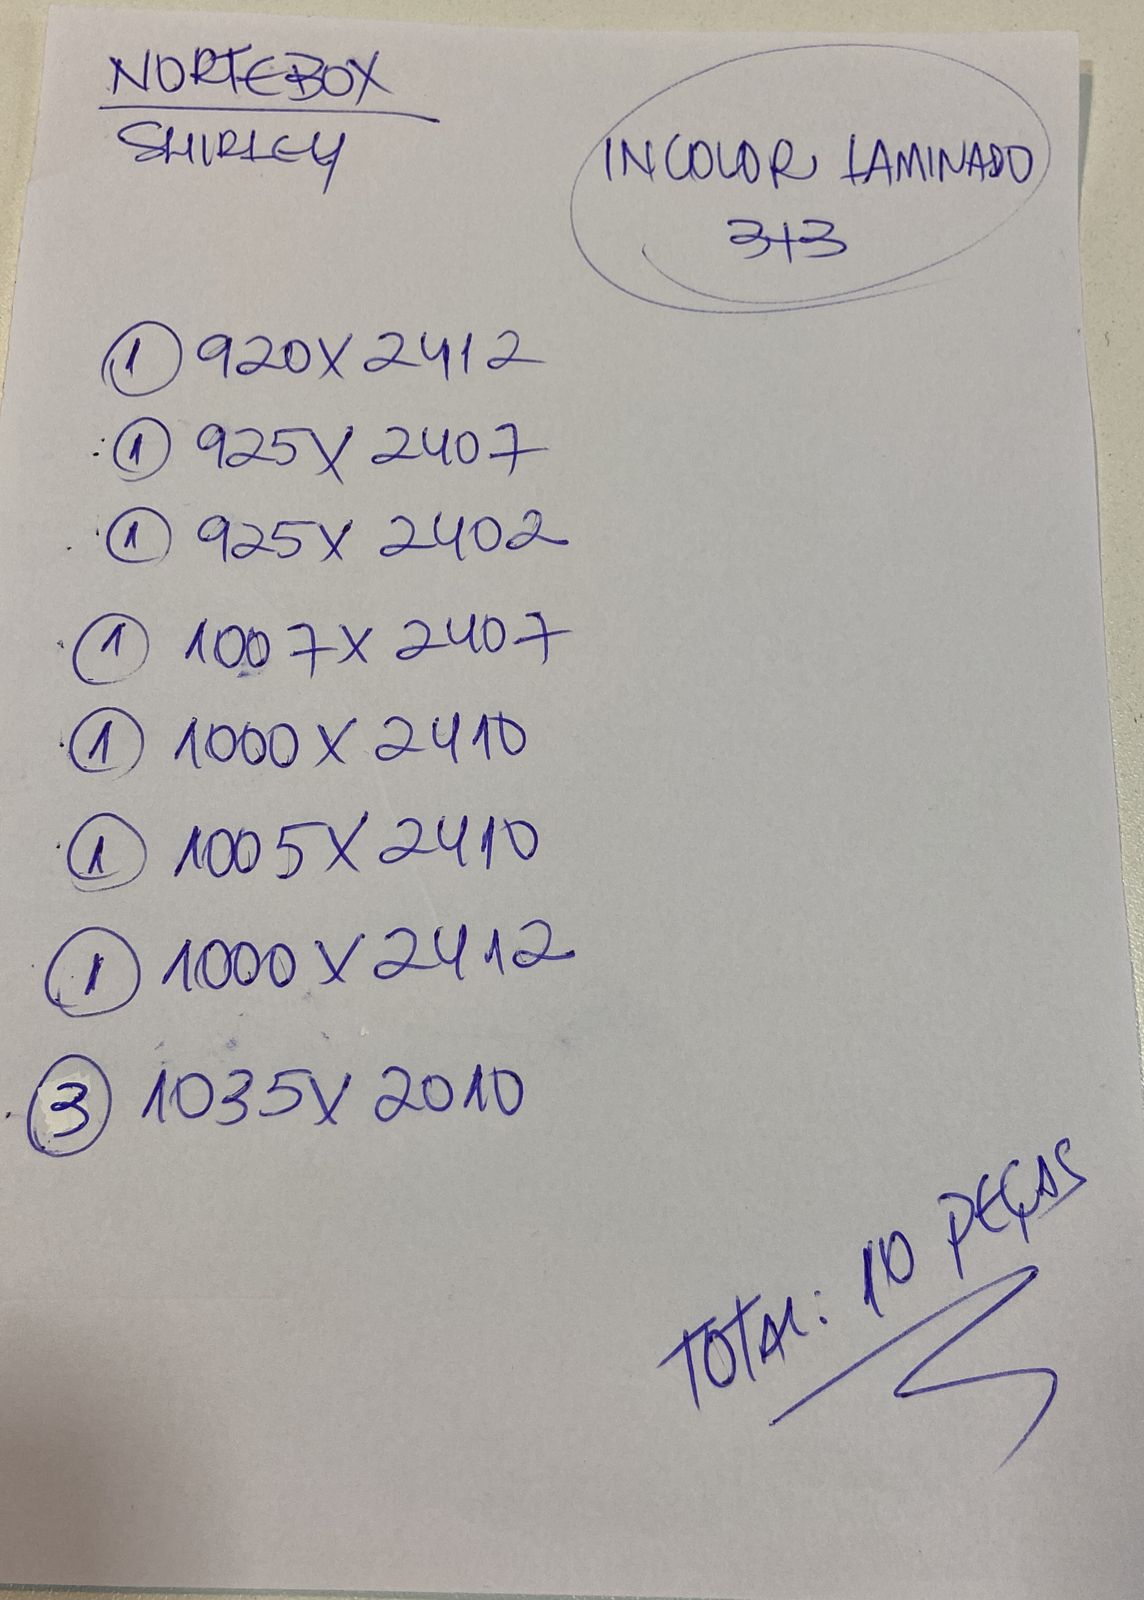 NORTEBOX
SHIRLEY
INCOLOR LAMINADO
3+3
1 920X2412
1 925X2407
1 925X2402
1 1007X2407
1 1000X2410
1 1005X2410
1 1000X2412
3 1035X2010
TOTAL: 10 PEÇAS